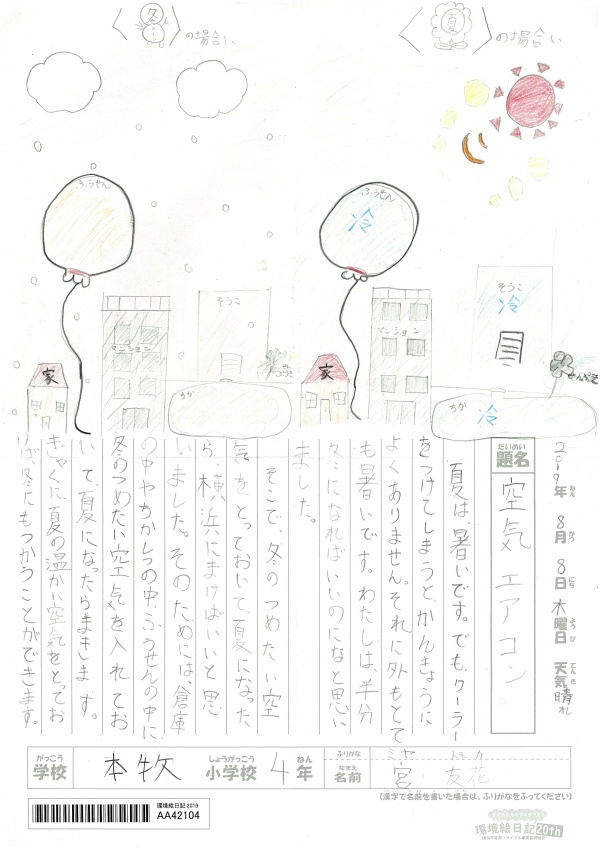 冬
の場合い
夏
の場合い
ふうせん
ふうせん
冷
そうこ
そうこ
冷
マンション
マンション
家
家
せんぷうき
ちか
ちか
冷
2019年ねん 8月がつ 8日にち 木曜日ようび 天気てんき 晴れ
題名だいめい
空気エアコン
夏は、暑いです。でも、クーラー
をつけてしまうと、かんきょうに
よくありません。それに外もとて
も暑いです。わたしは、半分
冬になればいいのになと思い
ました。
そこで、冬のつめたい空
気をとっておいて、夏になった
ら、横浜にまけばいいと思
いました。そのためには、倉庫
の中やちかしつの中、ふうせんの中に
冬のつめたい空気を入れてお
いて、夏になったらまきます。
ぎゃくに、夏の温かい空気をとってお
けば、冬にもつかうことができます。
がっこう
学校
本牧
しょうがっこう
小学校
4
ねん
年
ふりがな
なまえ
名前
ミヤ トモカ
宮 友花
(漢字で名前を書いた場合は、ふりがなをふってください)
環境絵日記 2019
AA42104
環境絵日記20th